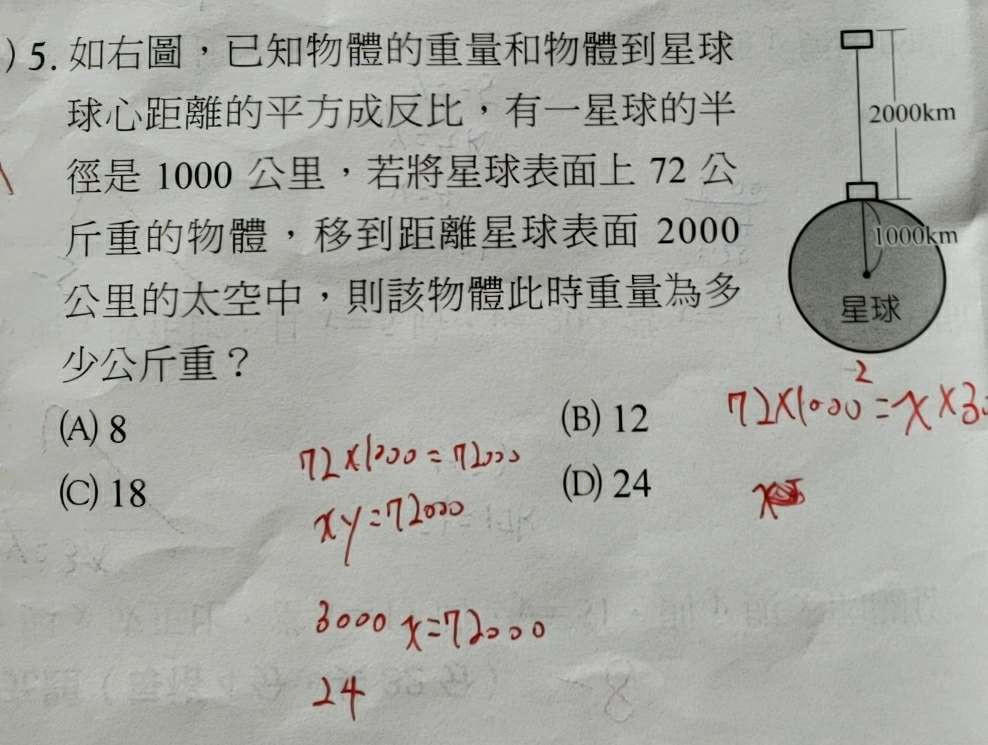 ) 5. 如右圖，已知物體的重量和物體到星球
球心距離的平方成反比，有一星球的半
徑是 1000 公里，若將星球表面上 72 公
斤重的物體，移到距離星球表面 2000
公里的太空中，則該物體此時重量為多
少公斤重？
2000km
1000km
星球
(A) 8
(B) 12
(C) 18
(D) 24
72×1000²=x×30
x
72×1000=72000
xy=72000
3000x=72000
24